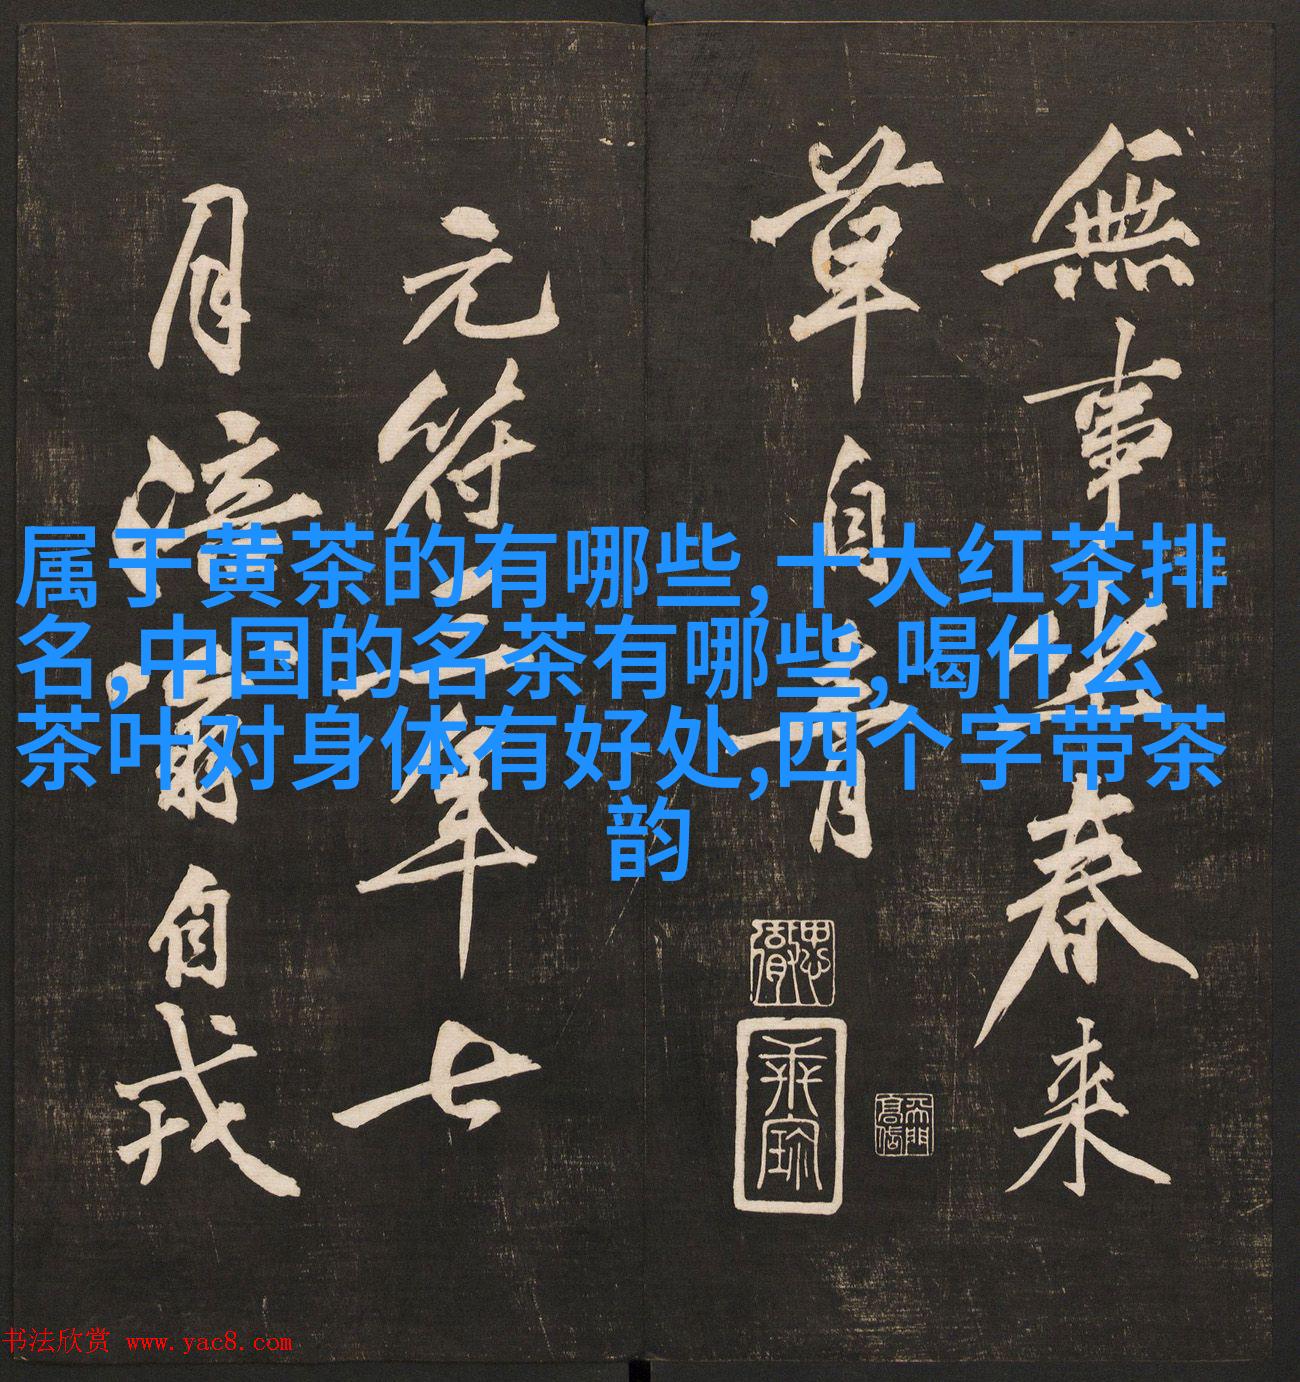 無事坐春来
草自青
元符三年七
月涪翁自戎
属于黄茶的有哪些,十大红茶排
名,中国的名茶有哪些,喝什么
茶叶对身体有好处,四个字带茶
韵
书法欣赏 www.yac8.com